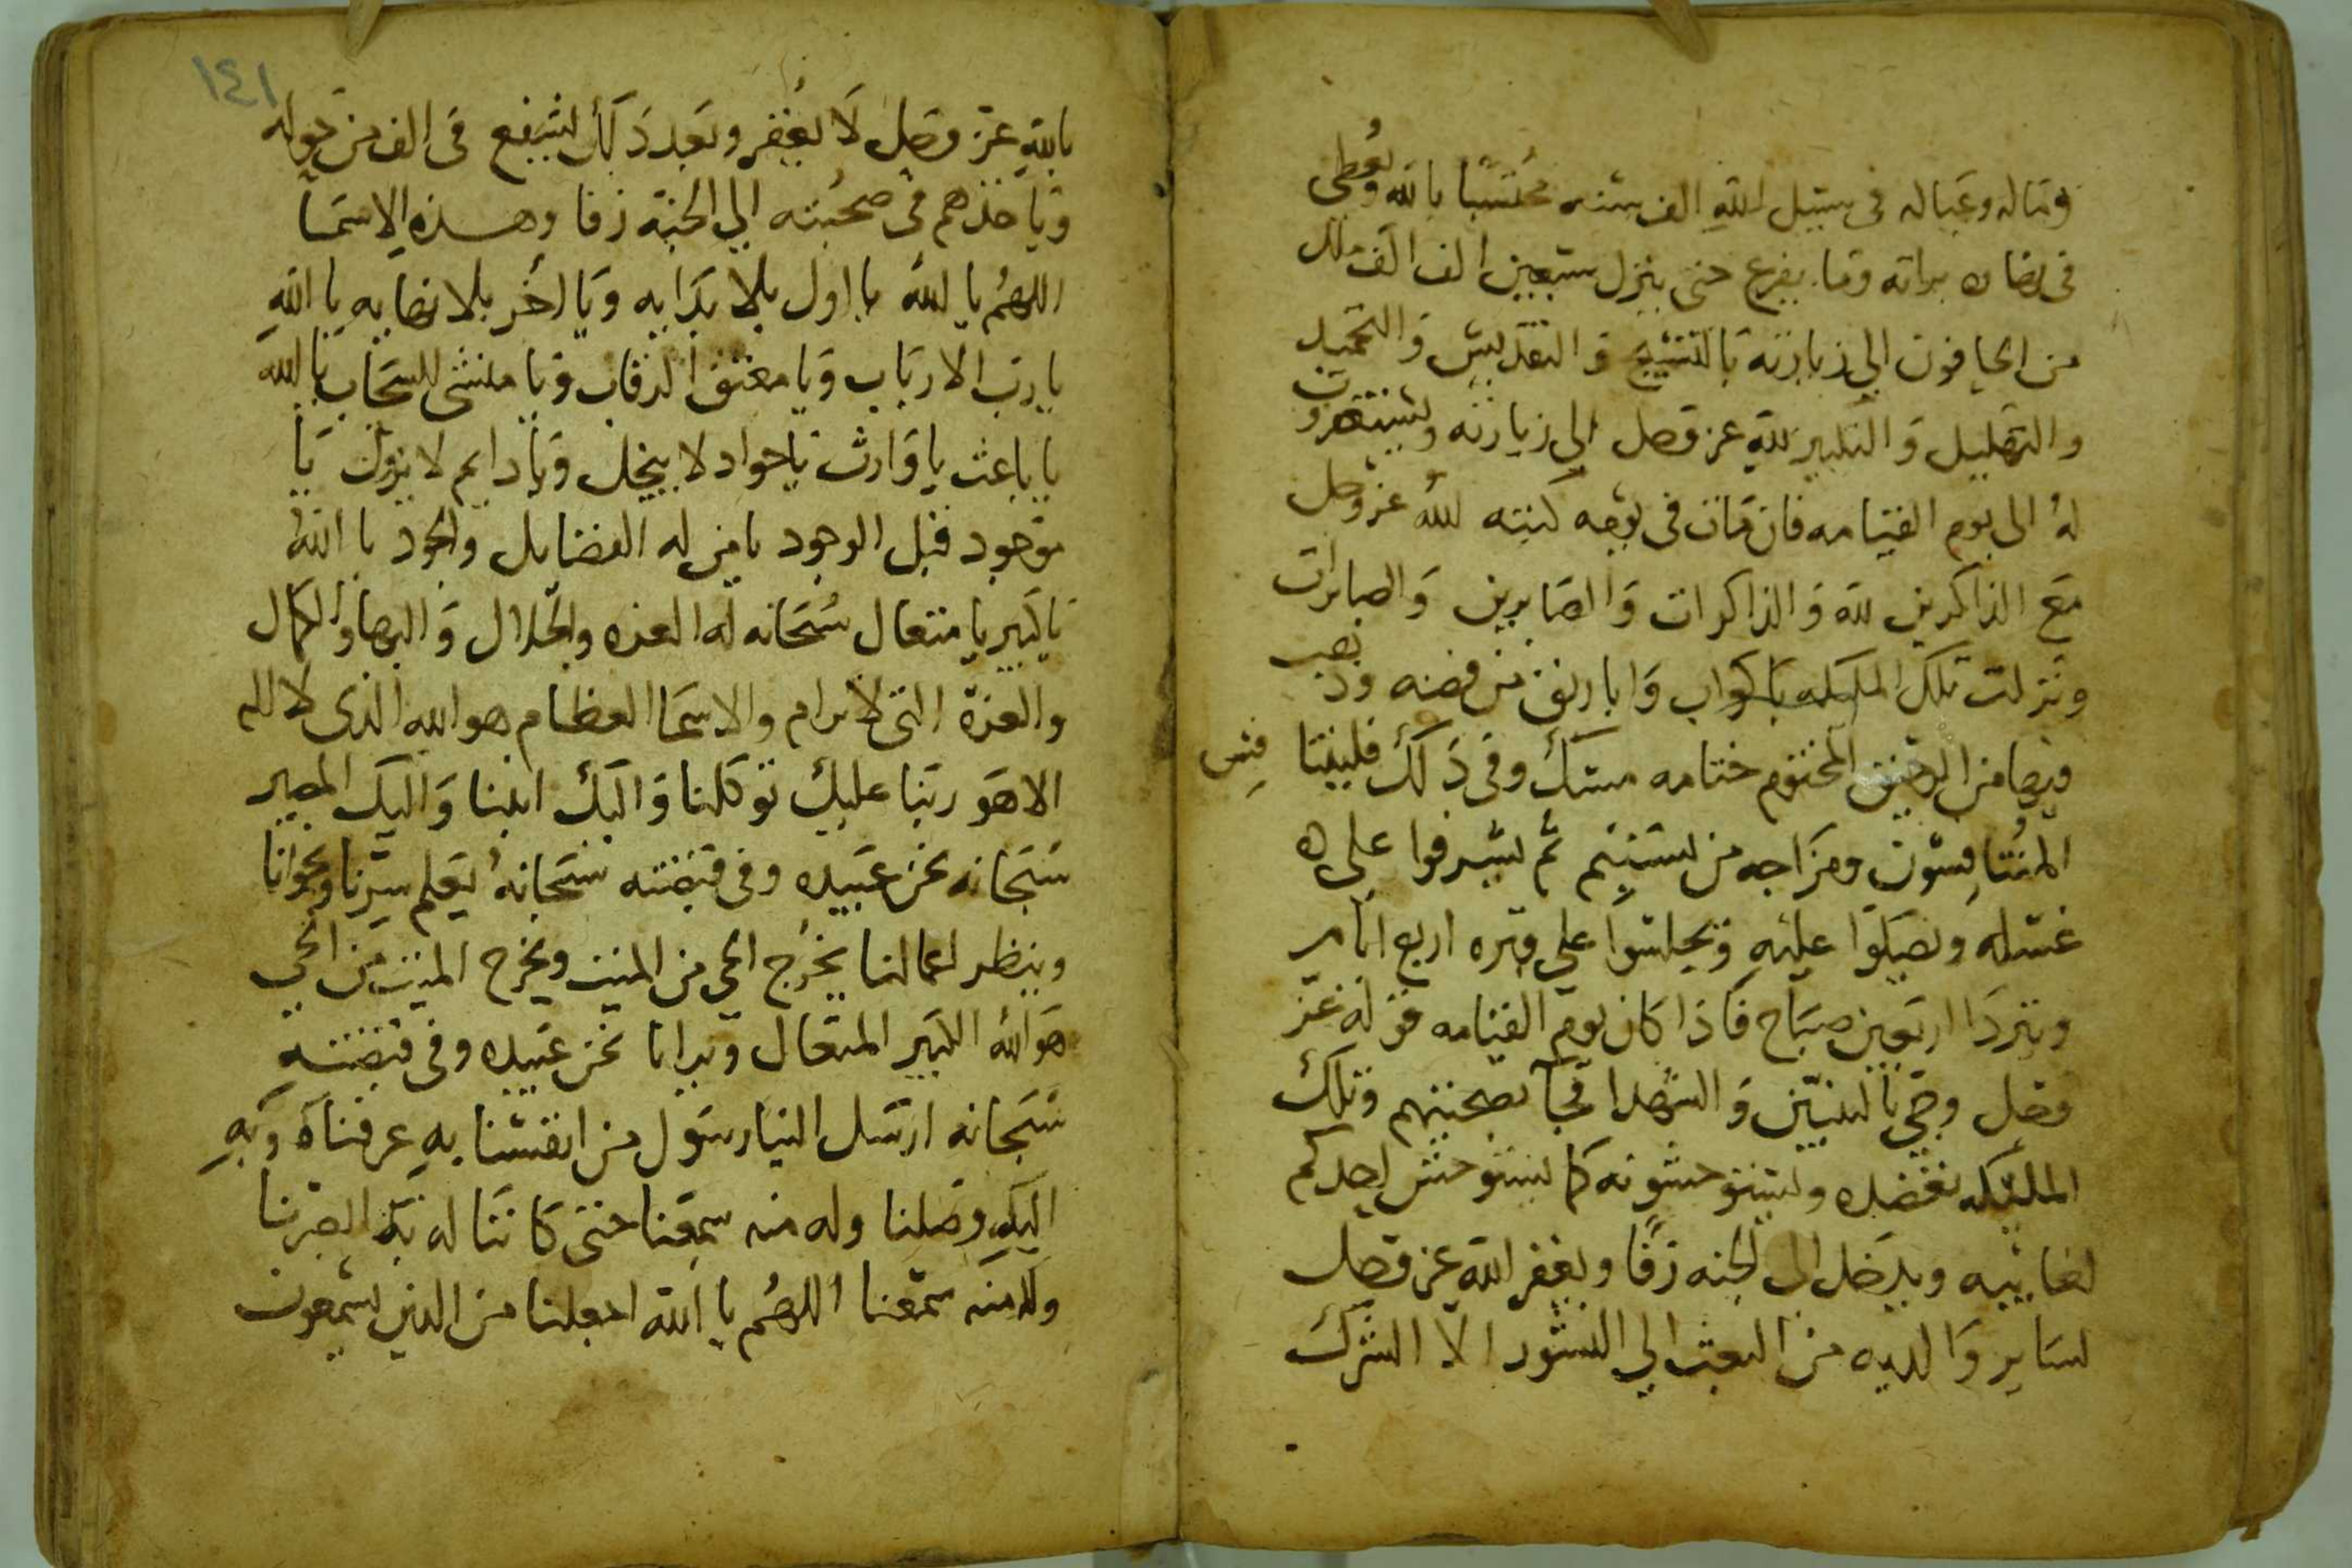 وماله وعياله فى سبيل الله الف سنه محتسبا بالله ويعطى
فى نهاره براته وما يفرع حتى ينزل سبعين الف الف ملك
من الحافون الي زيارته بالتسبيح و التقديس و التحميد
و التهليل و التكبير لله عز وجل الي زيارته ويستغفرون
له الى يوم القيامه فان مات فى يومه كتبه الله عز وجل
مع الذاكرين لله و الذاكرات و الصابرين و الصابرات
ونزلت تلك المليكه باكواب و اباريق من فضه وذهب
فيها من الرحيق المختوم ختامه مسك وفى ذلك فليتنا فس
المتنافسون ومزاجه من تسنيم ثم يشرفوا على
غسله ويصلوا عليه ويجلسوا على قبره اربع ايام
ويتردا اربعين صباح فاذا كان يوم القيامه قوله عز
وجل وجى بالنبيين و الشهدا فجآ بصحبتهم وتلك
المليكه تعضده ويستوحشونه كما يستوحش احدكم
لغايبه ويدخل الى الجنه زفا ويغفر الله عز وجل
لساير والديه من البعث الي النشور الا الشرك
١٤١
بالله عز وجل لا يغفر وبعد ذلك يشفع فى الف من حوله
وياخذهم فى صحبته الي الجنة زفا وهذه الاسما
اللهم يا الله يا اول بلا بدايه ويا اخر بلا نهايه يا الله
يا رب الارباب ويا معتق الرقاب ويا منشى السحاب يا الله
يا باعث يا وارث يا جواد لا يبخل ويا دايم لا يزول يا
موجود قبل الوجود يا من له الفضايل والجود يا الله
يا كبير يا متعال سبحانه له العزه والجلال و البها والكمال
والعزة التى لا ترام والاسما العظام هو الله الذى لا اله
الا هو ربنا عليك توكلنا و اليك انبنا و اليك المصير
سبحانه نحن عبيده وفى قبضته سبحانه يعلم سرنا ونجوانا
وينظر اعمالنا يخرج الحي من الميت ويخرج الميت من الحي
هو الله الكبير المتعال ويرانا نحن عبيده وفى قبضته
سبحانه ارسل الينا رسول من انفسنا به عرفناه وبه
اليه وصلنا وله منه سمعنا حتى كاننا له به ابصرنا
وله منه سمعنا اللهم يا الله اجعلنا من الذين يسمعون